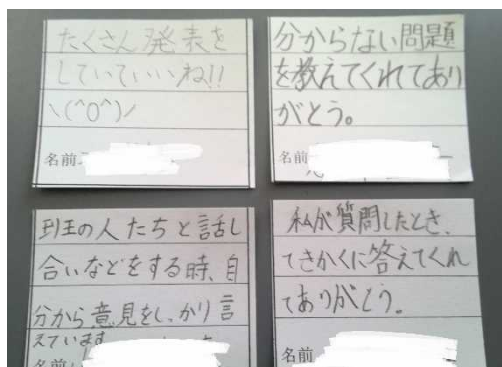 たくさん発表を
していていいね!!
\(^O^)/
名前
分からない問題
を教えてくれてあり
がとう。
名前
班の人たちと話し
合いなどをする時、自
分から意見をしっかり言
えています
名前
私が質問したとき、
てきかくに答えてくれ
てありがとう。
名前